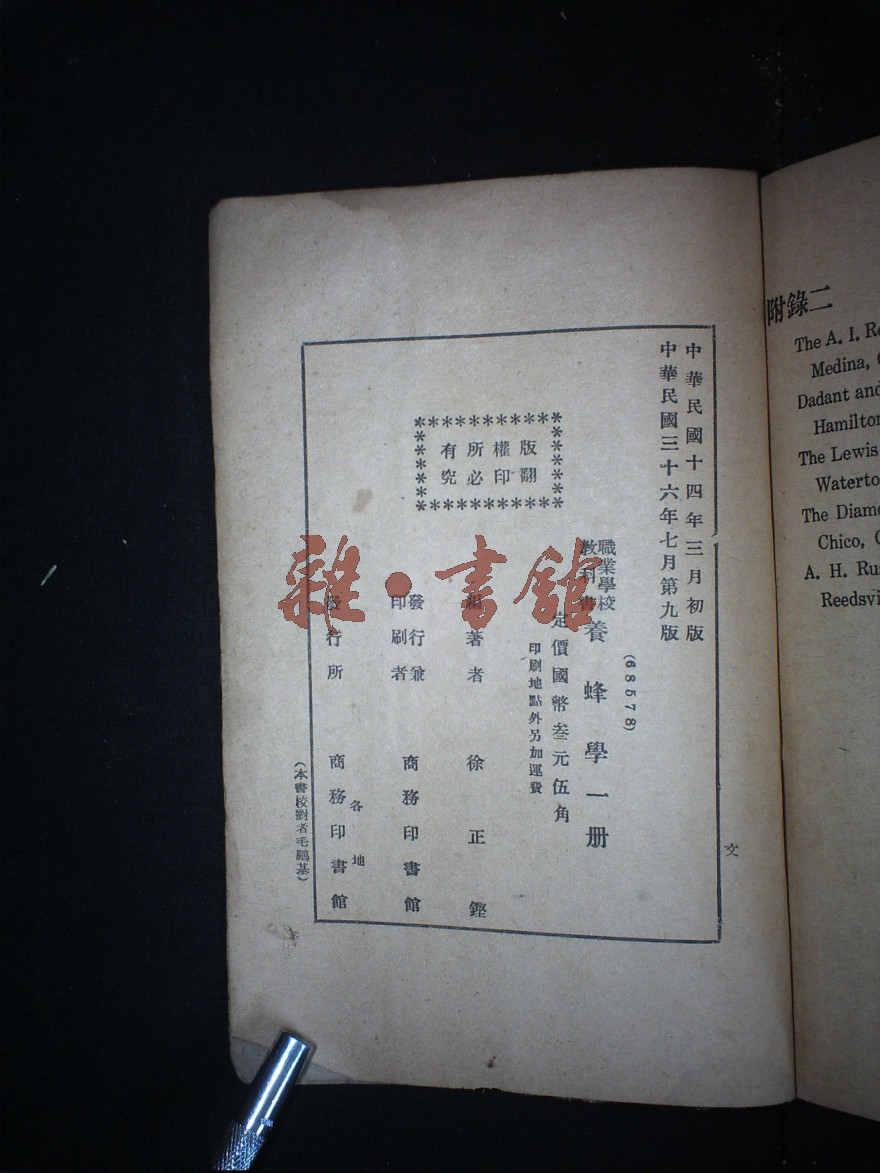 中華民國十四年三月初版
中華民國三十六年七月第九版
(68578)
職業學校
教科書
養蜂學一册
定價國幣叁元伍角
印刷地點外另加運費
版權所有
翻印必究
編著者 徐正鏗
發行兼
印刷者 商務印書館
發行所 各地
商務印書館
(本書校對者毛鵬基)
文
雜·書館
附錄二
The A. I. R
Medina,
Dadant and
Hamilton
The Lewis
Waterto
The Diam
Chico,
A. H. Rus
Reedsvi